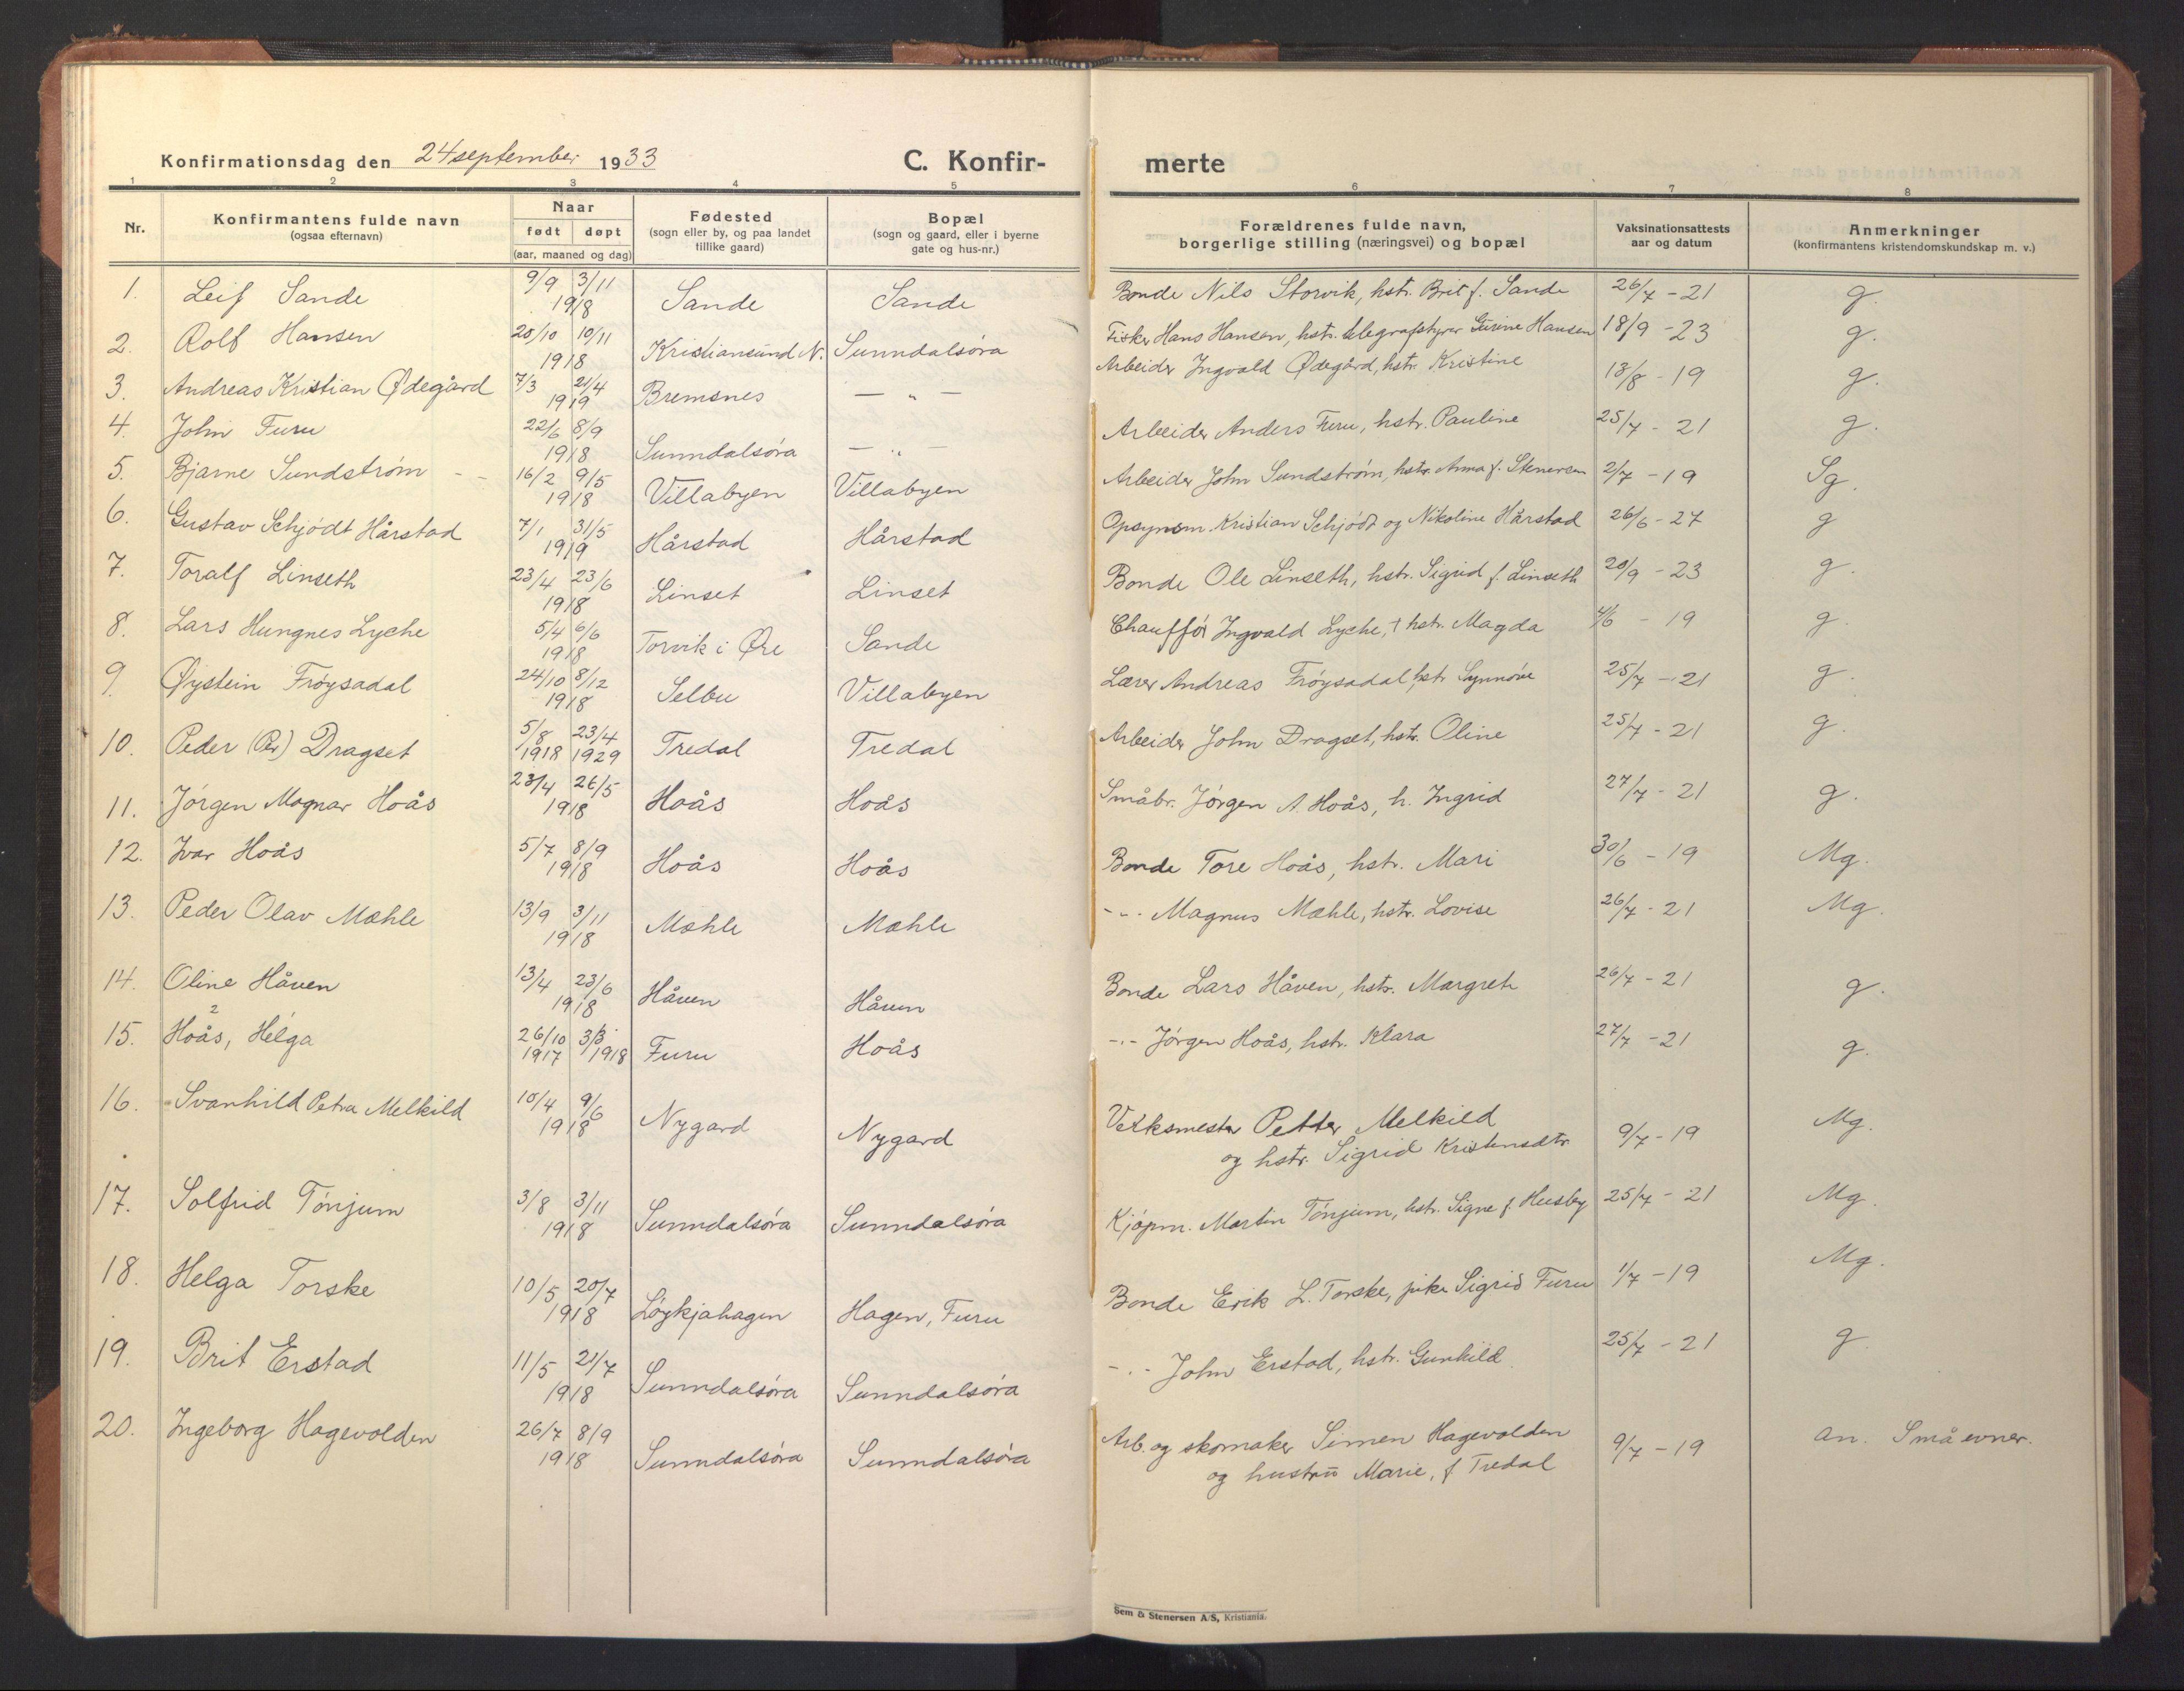 Konfirmationsdag den 24 september 1933 C. Konfir- merte
1 2 3 4 5 6 7 8
Nr. Konfirmantens fulde navn (ogsaa efternavn) Naar født døpt (aar, maaned og dag) Fødested (sogn eller by, og paa landet tillike gaard) Bopæl (sogn og gaard, eller i byerne gate og hus-nr.) Forældrenes fulde navn, borgerlige stilling (næringsvei) og bopæl Vaksinationsattests aar og datum Anmerkninger (konfirmantens kristendomskundskap m. v.)
1. Leif Sande 9/9 3/11 1918 Sande Sande Bonde Nils Storvik, hstr. Brit f. Sande 26/7 - 21 g.
2. Rolf Hansen 20/10 10/11 1918 Kristiansund N. Sunndalsøra Fisker Hans Hansen, hstr. telegrafstyrer Gurine Hansen 18/9 - 23 g.
3. Andreas Kristian Ødegård 7/3 21/4 1919 Bremsnes — " — Arbeider Ingvald Ødegård, hstr. Kristine 18/8 - 19 g.
4. John Furu 22/6 8/9 1918 Sunndalsøra — " — Arbeider Anders Furu, hstr. Pauline 25/7 - 21 g.
5. Bjarne Sundstrøm 16/2 9/5 1918 Villabyen Villabyen Arbeider John Sundstrøm, hstr. Anna f. Stenersen 2/7 - 19 Sg.
6. Gustav Schjødt Hårstad 7/1 31/5 1919 Hårstad Hårstad Opsynsm. Kristian Schjødt og Nikoline Hårstad 26/6 - 27 g
7. Toralf Linseth 23/4 23/6 1918 Linset Linset Bonde Ole Linseth, hstr. Sigrid f. Linseth 20/9 - 23 g.
8. Lars Hungnes Lyche 5/4 6/6 1918 Torvik i Øre Sande Chauffør Ingvald Lyche, † hstr. Magda 4/6 - 19 g.
9. Øystein Frøysadal 24/10 8/12 1918 Selbu Villabyen Lærer Andreas Frøysadal, hstr Synnøve 25/7 - 21 g.
10. Peder (Per) Dragset 5/8 1918 23/4 1929 Tredal Tredal Arbeider John Dragset, hstr. Oline 25/7 - 21 g.
11. Jørgen Magnar Hoås 23/4 26/5 1918 Hoås Hoås Småbr. Jørgen A. Hoås, h. Ingrid 27/7 - 21 g.
12. Ivar Hoås 5/7 8/9 1918 Hoås Hoås Bonde Tore Hoås, hstr. Mari 30/6 - 19 Mg.
13. Peder Olav Mæhle 13/9 3/11 1918 Mæhle Mæhle -"- Magnus Mæhle, hstr. Lovise 26/7 - 21 Mg.
14. Oline Håven 13/4 23/6 1918 Håven Håven Bonde Lars Håven, hstr. Margrete 26/7 - 21 g.
15. Hoås, Helga 26/10 1917 3/3 1918 Furu Hoås -"- Jørgen Hoås, hstr. Klara 27/7 - 21 g.
16. Svanhild Petra Melkild 10/4 9/6 1918 Nygard Nygard Verksmester Petter Melkild
og hstr. Sigrid Kristensdtr 9/7 - 19 Mg.
17. Solfrid Tønjum 3/8 3/11 1918 Sunndalsøra Sunndalsøra Kjøpm. Martin Tønjum, hstr. Signe f. Husby 25/7 - 21 Mg.
18. Helga Torske 10/5 20/7 1918 Løykjahagen Hagen, Furu Bonde Erik L. Torske, pike Sigrid Furu 1/7 - 19 Mg.
19. Brit Erstad 11/5 21/7 1918 Sunndalsøra Sunndalsøra -"- John Erstad, hstr. Gunhild 25/7 - 21 g.
20. Ingeborg Hagevolden 26/7 8/9 1918 Sunndalsøra Sunndalsøra Arb. og skomaker Simen Hagevolden
og hustru Marie, f Tredal 9/7 - 19 an. Små evner.
Sem & Stenersen A/S, Kristiania.